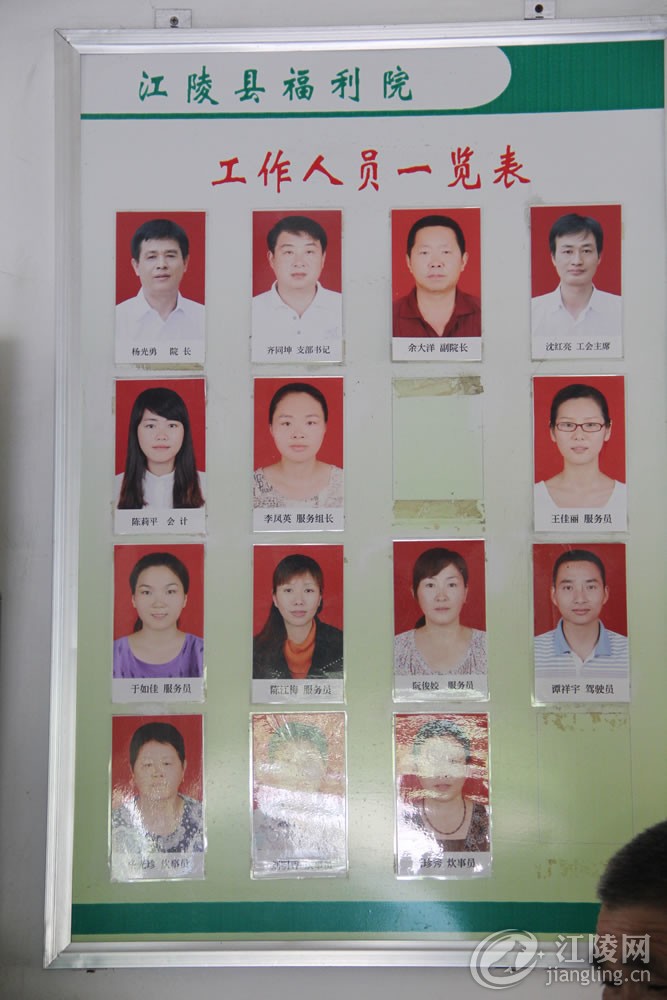 江陵县福利院
工作人员一览表
杨光勇 院 长
齐同坤 支部书记
余大洋 副院长
沈红亮 工会主席
陈莉平 会 计
李凤英 服务组长
王佳丽 服务员
于如佳 服务员
陈江梅 服务员
阮俊姣 服务员
谭祥宇 驾驶员
炊事员
珍秀 炊事员
江陵网
jiangling.cn